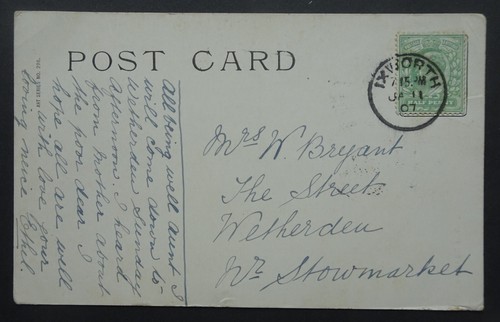 POST CARD
All being well aunt I
will come down to
Wetherden Sunday
afternoon. I heard
from Mother about
the poor dear I
hope all are well
with love your
loving neice Ethel.
IXWORTH
7.15 PM
JA 11
07
HALF PENNY
Mrs W. Bryant
The Street
Wetherden
Nr Stowmarket